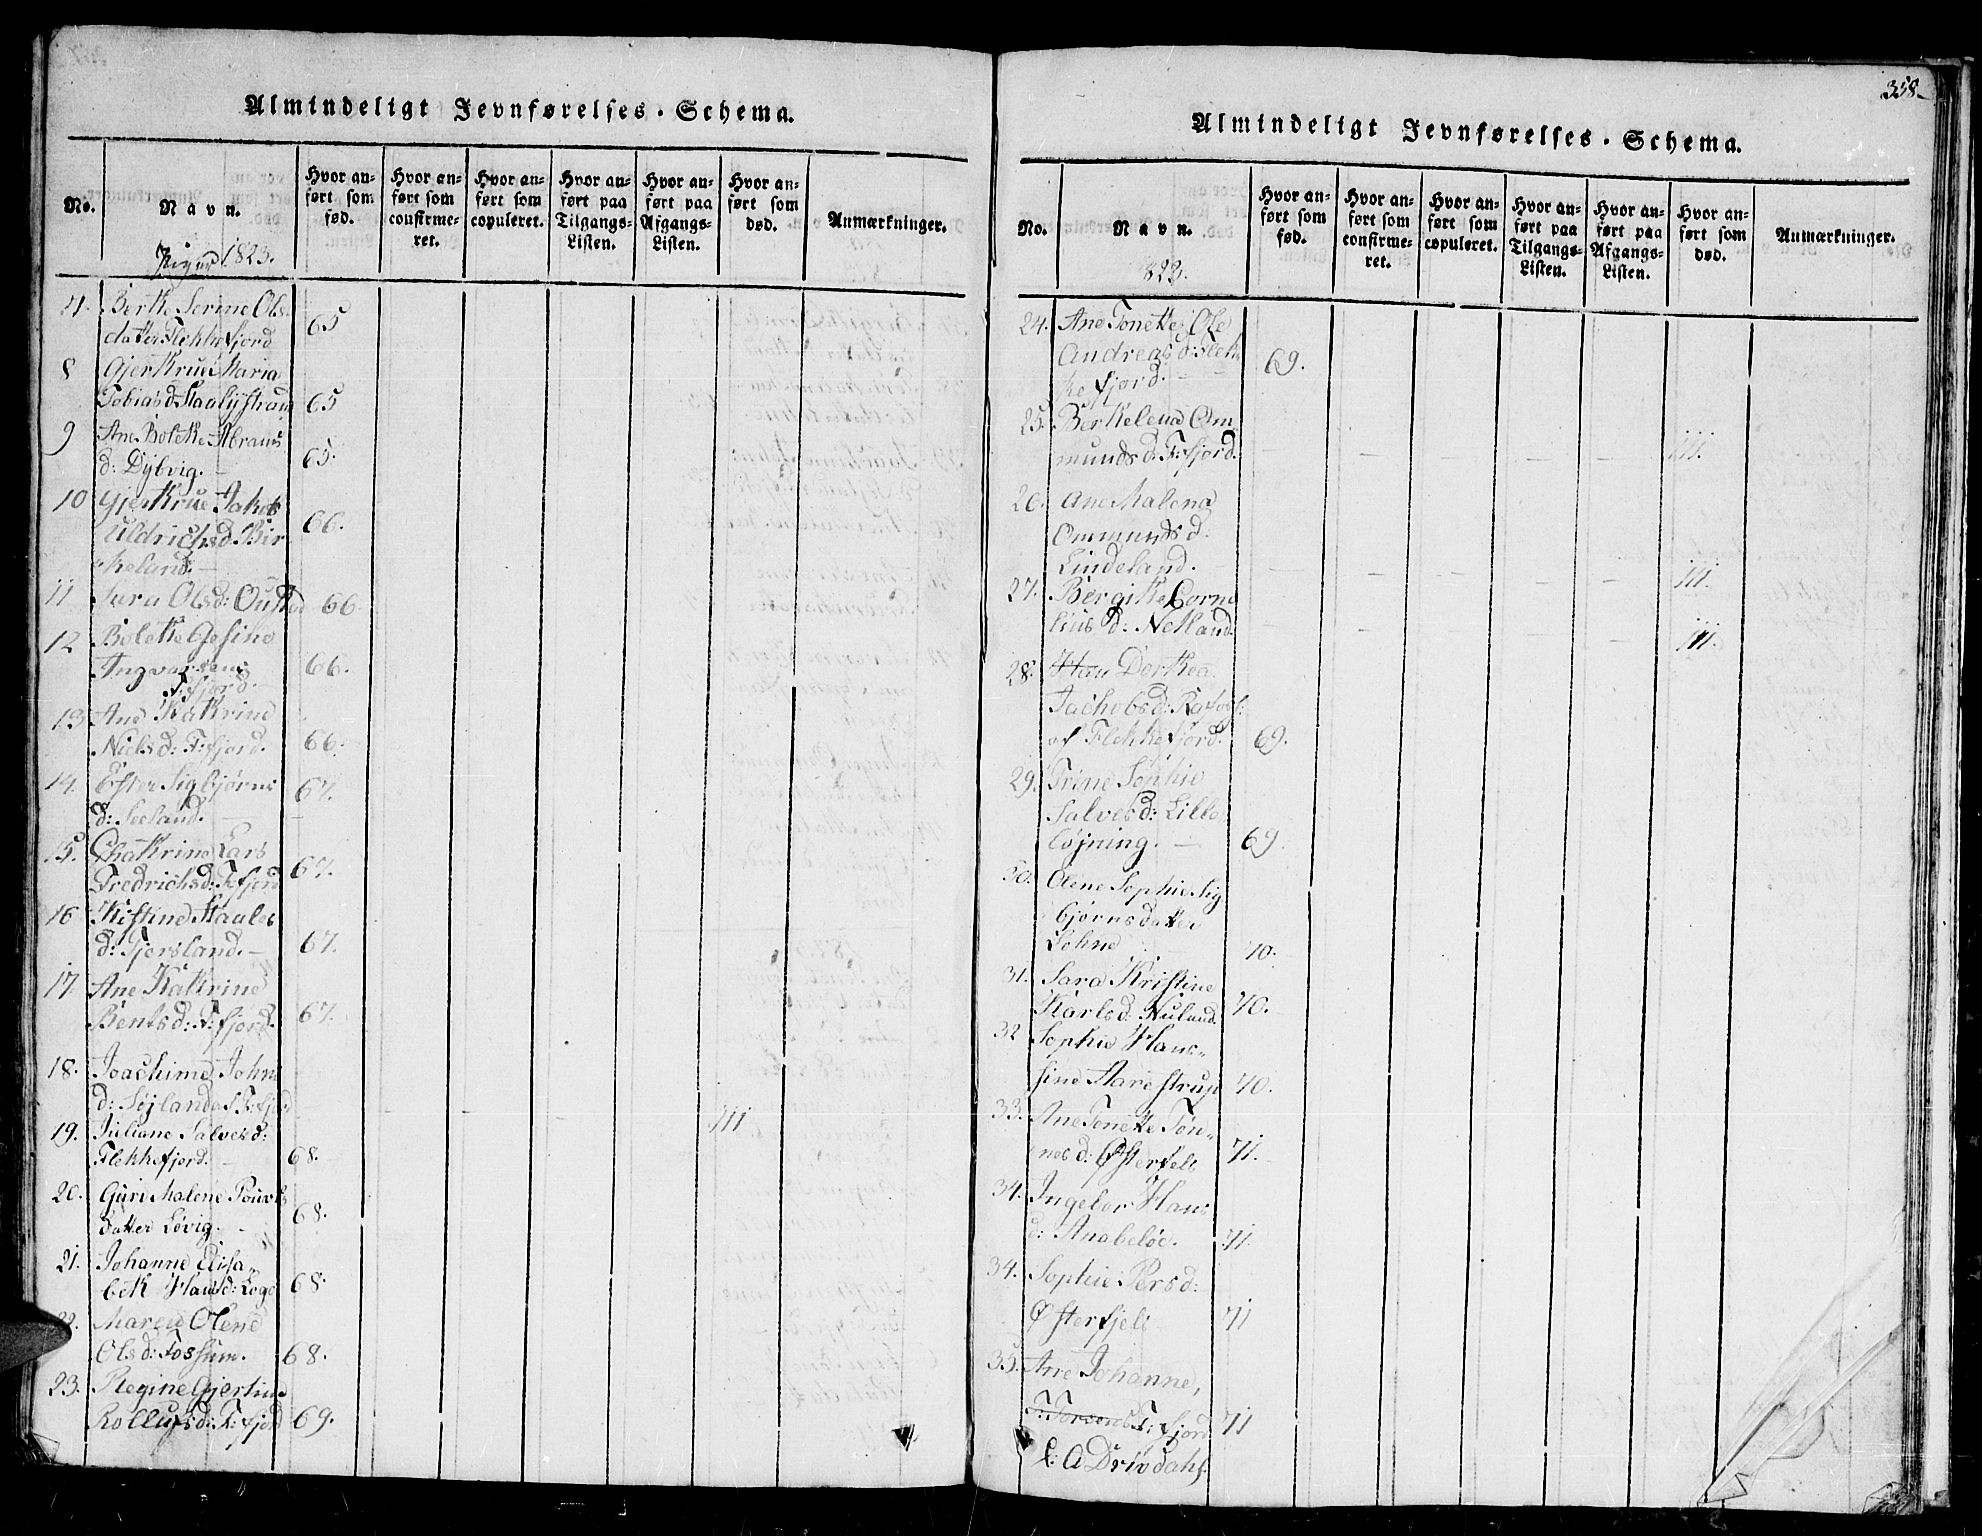 Almindeligt Jevnførelses-Schema.
No.
Navn.
Hvor an-
ført som
fød.
Hvor an-
ført som
confirme-
ret.
Hvor an-
ført som
copuleret.
Hvor an-
ført paa
Tilgangs-
Listen.
Hvor an-
ført paa
Afgangs-
Listen.
Hvor an-
ført som
død.
Anmærkninger.
Piger 1823.
Berthe Serine Ols
datter Flekkefjord 65
8 Gjertrud Maria
Tobiasd 65
9 Ane Bolethe Abrams
d: Dybvig. 65.
10 Gjertrue Jakob
Uldrichsd. Bir- 66.
keland.
11 Sara Olsd: 66
12 Bolethe Gesine
Ingvarsens 66.
F:fjord.
13 Ane Kathrine
Nielsd: F:fjord. 66.
14. Ester Sigbjørns 67.
d: Seland.
15. Chathrine Lars
Fredrichsd: F:fjord 67.
16 Kistine Staales
d: Fjersland. 67.
17. Ane Kathrine
Bentsd: F:fjord. 67.
18. Joachime Johns
d: af F:fjord 111
19. Juliane Salvesd:
Flekkefjord. 68.
20. Guri Malene Pouvls
datter Løvig. 68.
21. Johanne Elisa-
beth Hansd: Loge 68
22. Maren Olene
Olsd: Fossum. 68.
23. Regine Gjertine
Rollufsd: F:fjord 69.
358
Almindeligt Jevnførelses-Schema.
No.
Navn.
Hvor an-
ført som
fød.
Hvor an-
ført som
confirme-
ret.
Hvor an-
ført som
copuleret.
Hvor an-
ført paa
Tilgangs-
Listen.
Hvor an-
ført paa
Afgangs-
Listen.
Hvor an-
ført som
død.
Anmærkninger.
823.
24. Ane Tonette Ole
Andreasd: Flek 69.
kefjord.
25. Berthelena Om
mundsd: F:fjord. 111.
26. Ane Malena
Ommundsd:
Lindeland. 111.
27. Bergithe Corne
lius d: Netland. 111.
28. Han Dorthea
Jachobsd:
af Flekkefjord. 69.
29. Trine Sophie
Salvesd: Lille
løjning. 69
30. Olene Sophie Sig
bjørnsdatter
Lohne 70.
31. Sara Kristine
Karlsd: Nuland. 70.
32 Sophie Hans-
sine Aarestrup 70.
33. Ane Tonette Tøn-
nesd: Østerfele 71.
34. Ingebor Hans
d: Anabeløe. 71.
34. Sophie Persd:
Østerfjele 71
35. Ane Johanne,
F:fjord 71
Drivdahl.